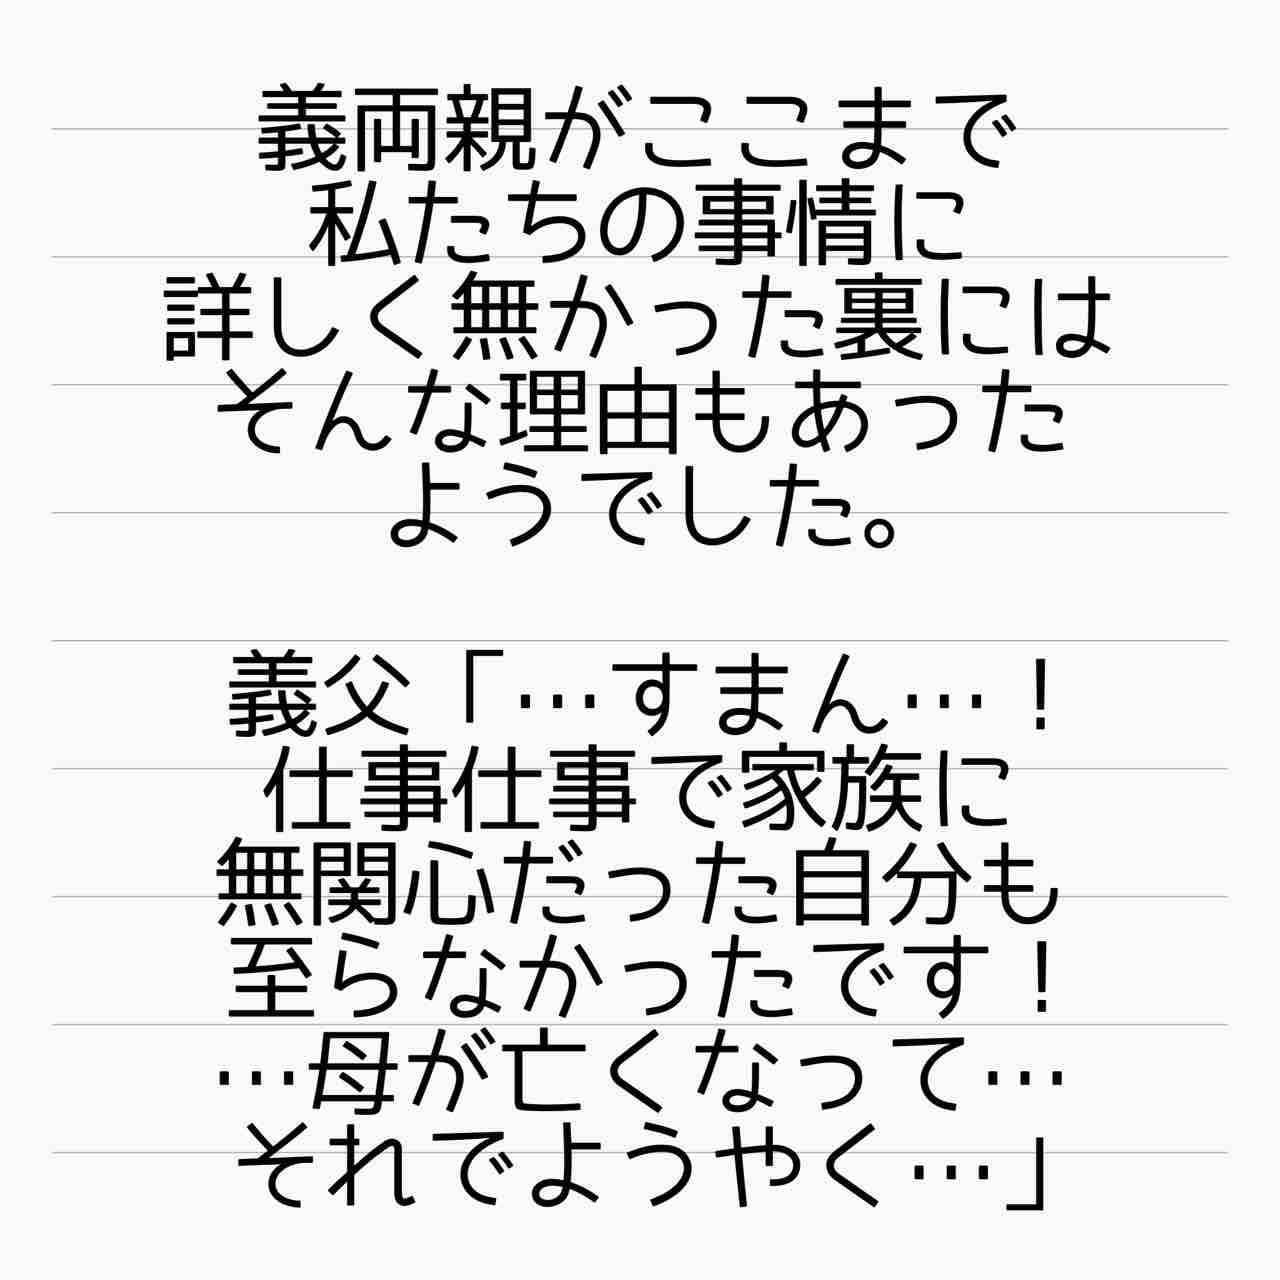 義両親がここまで
私たちの事情に
詳しく無かった裏には
そんな理由もあった
ようでした。
義父「…すまん…！
仕事仕事で家族に
無関心だった自分も
至らなかったです！
…母が亡くなって…
それでようやく…」